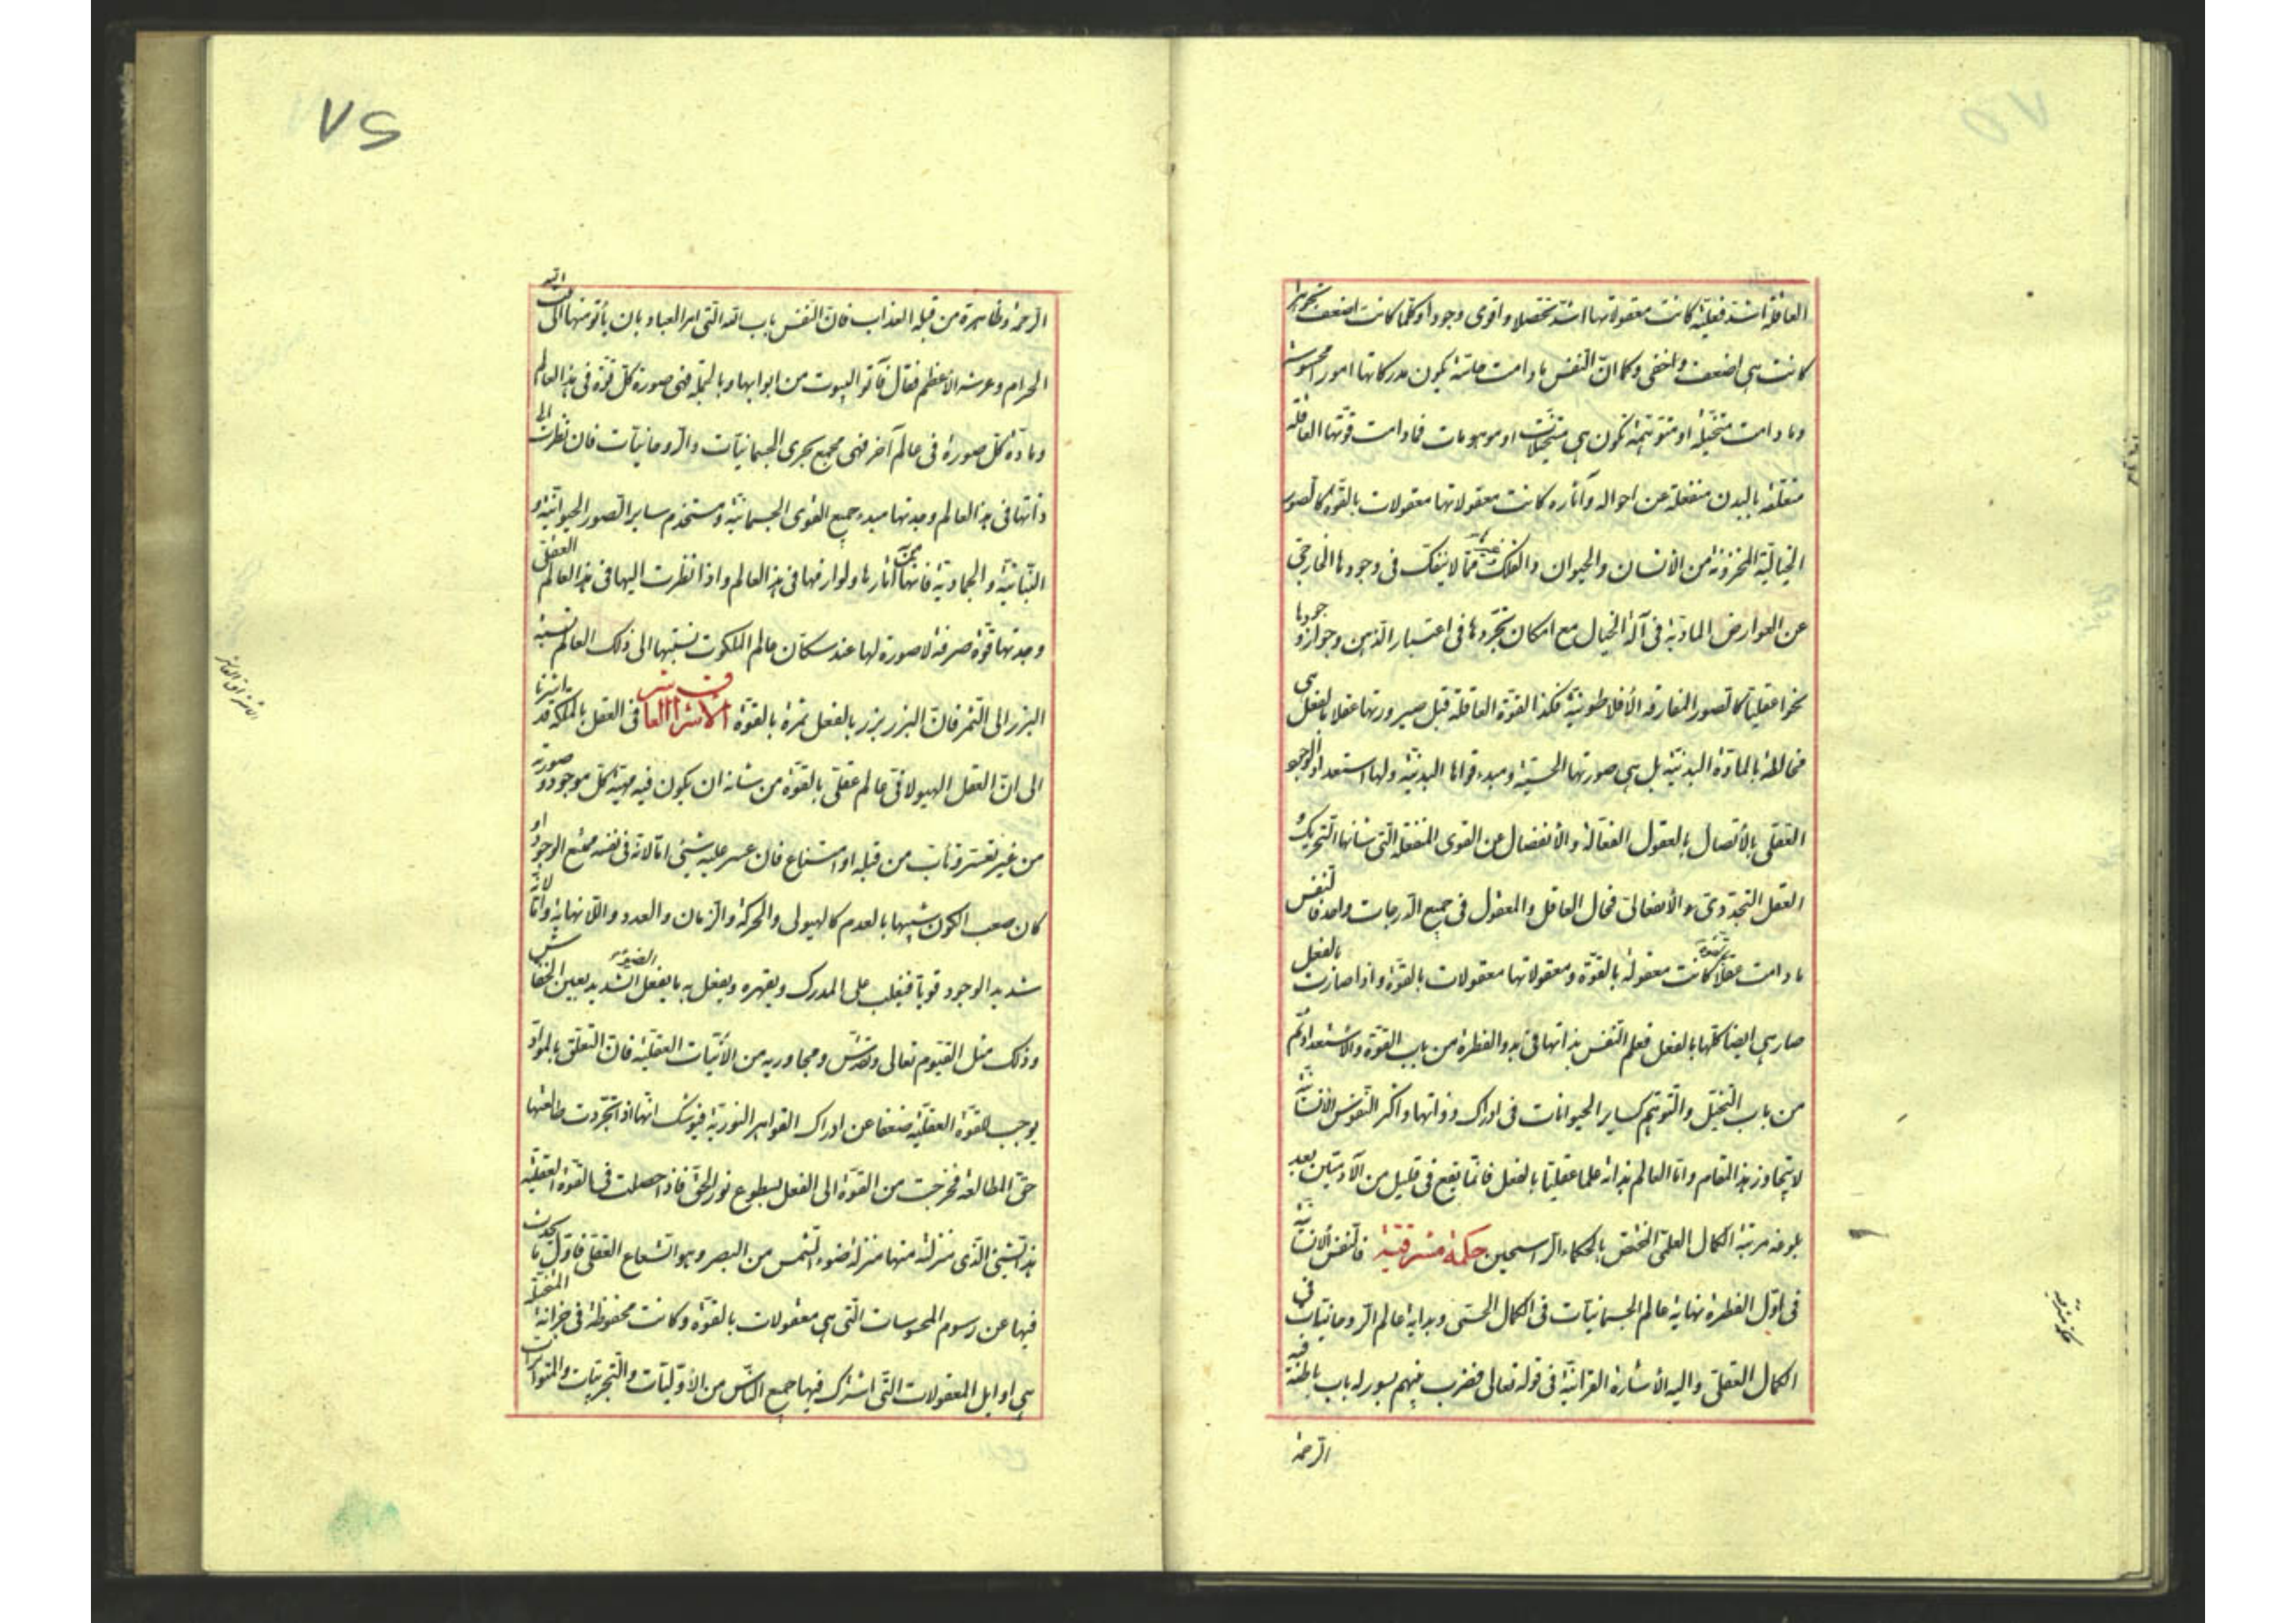 العاقلة اشد فعلية كانت معقولاتها اشد تحصلا واقوى وجودا وكلما كانت اضعف تجوهرا
كانت هي اضعف واخفى وكما ان النفس ما دامت حاسة يكون مدركاتها امورا محسوسة
وما دامت متخيلة او متوهمة تكون هي متخيلات او موهومات فما دامت قوتها العاقلة
متعلقة بالبدن منفعلة عن احواله وآثاره كانت معقولاتها معقولات بالقوة كالصور
الخيالية المخزونة من الانسان والحيوان والفلك مما لا ينفك في وجودها الخارجي
عن العوارض المادية في آلة الخيال مع امكان تجردها في اعتبار الذهن وجواز وجودها
نحوا عقليا كالصور المفارقة الأفلاطونية فكذا القوة العاقلة قبل صيرورتها عقلا بالفعل هي
مخالطة بالمادة البدنية بل هي صورتها الحسية ومبدء قواها البدنية ولها استعداد الوجود
العقلي بالأتصال بالعقول الفعالة والأنفصال عن القوى المنفعلة التي شانها التحريك و
العقل التجددي والأنفعالي فحال العاقل والمعقول في جميع الدرجات واحد فالنفس
ما دامت عقلا كانت معقولة بالقوة ومعقولاتها معقولات بالقوة واذا صارت بالفعل
صار هي ايضا كلها بالفعل فعلم النفس بذاتها في بدو الفطرة من باب القوة والاستعداد ثم
من باب التخيل والتوهم كساير الحيوانات في ادراك ذواتها واكثر النفوس الانسانية
لا يتجاوز هذا المقام واما العالم بذاته علما عقليا بالفعل فانما يقع في قليل من الآدميين بعد
بلوغه مرتبة الكمال العلمي المختص بالحكماء الراسخين حكمة مشرقية فالنفس الانسانية
في اول الفطرة نهاية عالم الجسمانيات في الكمال الحسي وبداية عالم الروحانيات في
الكمال العقلي واليه الاشارة القرانية في قوله تعالى فضرب بينهم بسور له باب باطنه فيه
الرحمة
حكمة مشرقية
٨٦
الرحمة وظاهره من قبله العذاب فان النفس باب الله التي امر العباد بان يأتوا منها الى بيته
الحرام وعرشه الأعظم فقال وآتوا البيوت من ابوابها وبالجملة فهي صورة كل قوة في هذا العالم
ومادة كل صورة في عالم آخر فهي مجمع بحري الجسمانيات والروحانيات فان نظرت الى
ذاتها في هذا العالم وجدتها مبدء جميع القوى الجسمانية ومستخدم ساير الصور الحيوانية و
النباتية والجمادية فانها من آثارها ولوازمها في هذا العالم واذا نظرت اليها في هذا العالم العقلي
وجدتها قوة صرفة لا صورة لها عند سكان عالم الملكوت نسبتها الى ذلك العالم نسبة
البزر الى الثمر فان البزر بزر بالفعل ثمرة بالقوة الأشراق العاشر في العقل بالملكة قد اشرنا
الى ان العقل الهيولاني عالم عقلي بالقوة من شانه ان يكون فيه مهية كل موجود وصورته
من غير تعسر وتأب من قبله او امتناع فان عسر عليه شيئ اما لانه في نفسه ممتنع الوجود او
كان صعب الكون شبيها بالعدم كالهيولى والحركة والزمان والعدد واللا نهاية واما لانه
شديد الوجود قويا فيغلب على المدرك ويقهره ويفعل به ما يفعل الضوء الشديد بعين الخفاش
وذلك مثل القيوم تعالى وتقدس ومجاوريه من الأنيات العقلية فان التعلق بالمواد
يوجب للقوة العقلية ضعفا عن ادراك القواهر النورية فيوشك انها اذا تجردت طالعتها
حق المطالعة فخرجت من القوة الى الفعل بسطوع نور الحق فاذا حصلت في القوة العقلية
هذا الشيئ الذي منزلته منها منزلة ضوء الشمس من البصر وهو الشعاع العقلي فاول ما يحدث
فيها عن رسوم المحسوسات التي هي معقولات بالقوة وكانت محفوظة في خزانة المتخيلة
هي اوايل المعقولات التي اشترك فيها جميع الناس من الأوليات والتجربيات والمتواترات
الاشراق العاشر